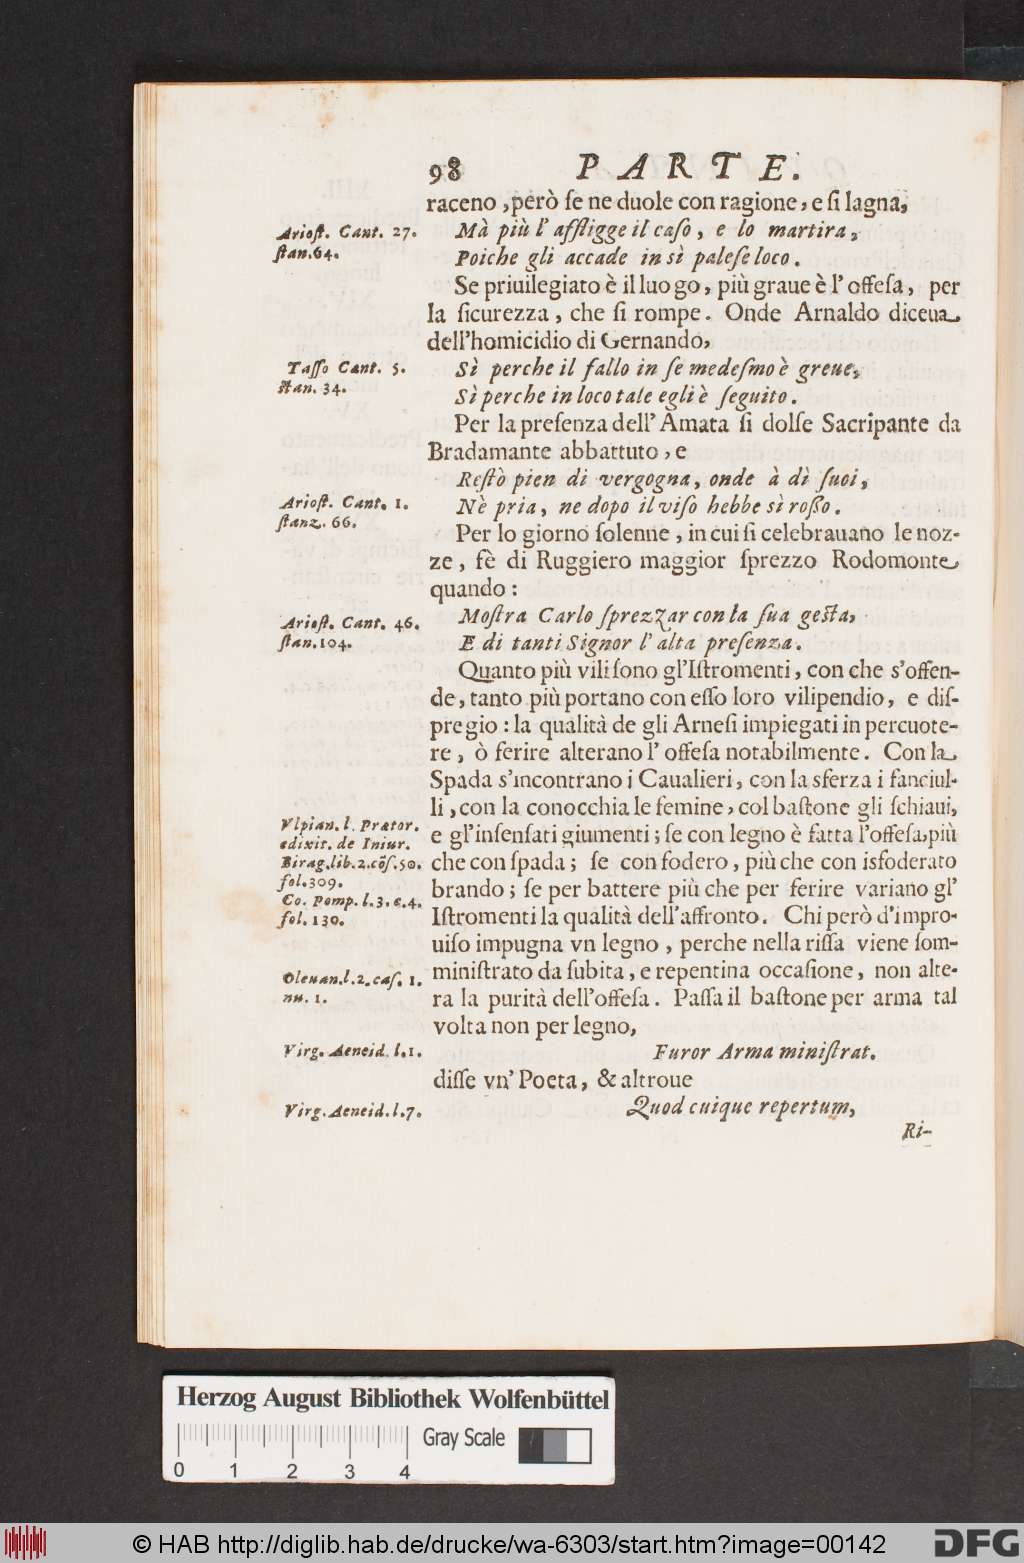 98 PARTE.
raceno, però ſe ne duole con ragione, e ſi lagna,
Arioſt. Cant. 27.
ſtan. 64.
Mà più l' affligge il caſo, e lo martira,
Poiche gli accade in sì paleſe loco.
Se priuilegiato è il luogo, più graue è l' offeſa, per
la ſicurezza, che ſi rompe. Onde Arnaldo diceua
dell'homicidio di Gernando,
Taſſo Cant. 5.
ſtan. 34.
Sì perche il fallo in ſe medeſmo è greue,
Sì perche in loco tale egli è ſeguito.
Per la preſenza dell' Amata ſi dolſe Sacripante da
Bradamante abbattuto, e
Reſtò pien di vergogna, onde à dì ſuoi,
Arioſt. Cant. 1.
ſtanz. 66.
Nè pria, ne dopo il viſo hebbe sì roſſo.
Per lo giorno ſolenne, in cui ſi celebrauano le noz-
ze, fè di Ruggiero maggior ſprezzo Rodomonte
quando:
Arioſt. Cant. 46.
ſtan. 104.
Moſtra Carlo ſprezzar con la ſua geſta,
E di tanti Signor l' alta preſenza.
Quanto più vili ſono gl'Iſtromenti, con che s'offen-
de, tanto più portano con eſſo loro vilipendio, e diſ-
pregio: la qualità de gli Arneſi impiegati in percuote-
re, ò ferire alterano l' offeſa notabilmente. Con la
Spada s'incontrano i Caualieri, con la sferza i fanciul-
li, con la conocchia le femine, col baſtone gli ſchiaui,
Vlpian. l. Prætor.
edixit. de Iniur.
Birag. lib. 2. cõſ. 50.
fol. 309.
Co. Pomp. l. 3. c. 4.
fol. 130.
e gl'inſenſati giumenti; ſe con legno è fatta l'offeſa, più
che con ſpada; ſe con fodero, più che con isfoderato
brando; ſe per battere più che per ferire variano gl'
Iſtromenti la qualità dell'affronto. Chi però d'impro-
uiſo impugna vn legno, perche nella riſſa viene ſom-
Oleuan. l. 2. caſ. 1.
nu. 1.
miniſtrato da ſubita, e repentina occaſione, non alte-
ra la purità dell'offeſa. Paſſa il baſtone per arma tal
volta non per legno,
Virg. Aeneid. l. 1.
Furor Arma miniſtrat.
diſſe vn' Poeta, & altroue
Virg. Aeneid. l. 7.
Quod cuique repertum,
Ri-
Herzog August Bibliothek Wolfenbüttel
Gray Scale
0 1 2 3 4
© HAB http://diglib.hab.de/drucke/wa-6303/start.htm?image=00142
DFG